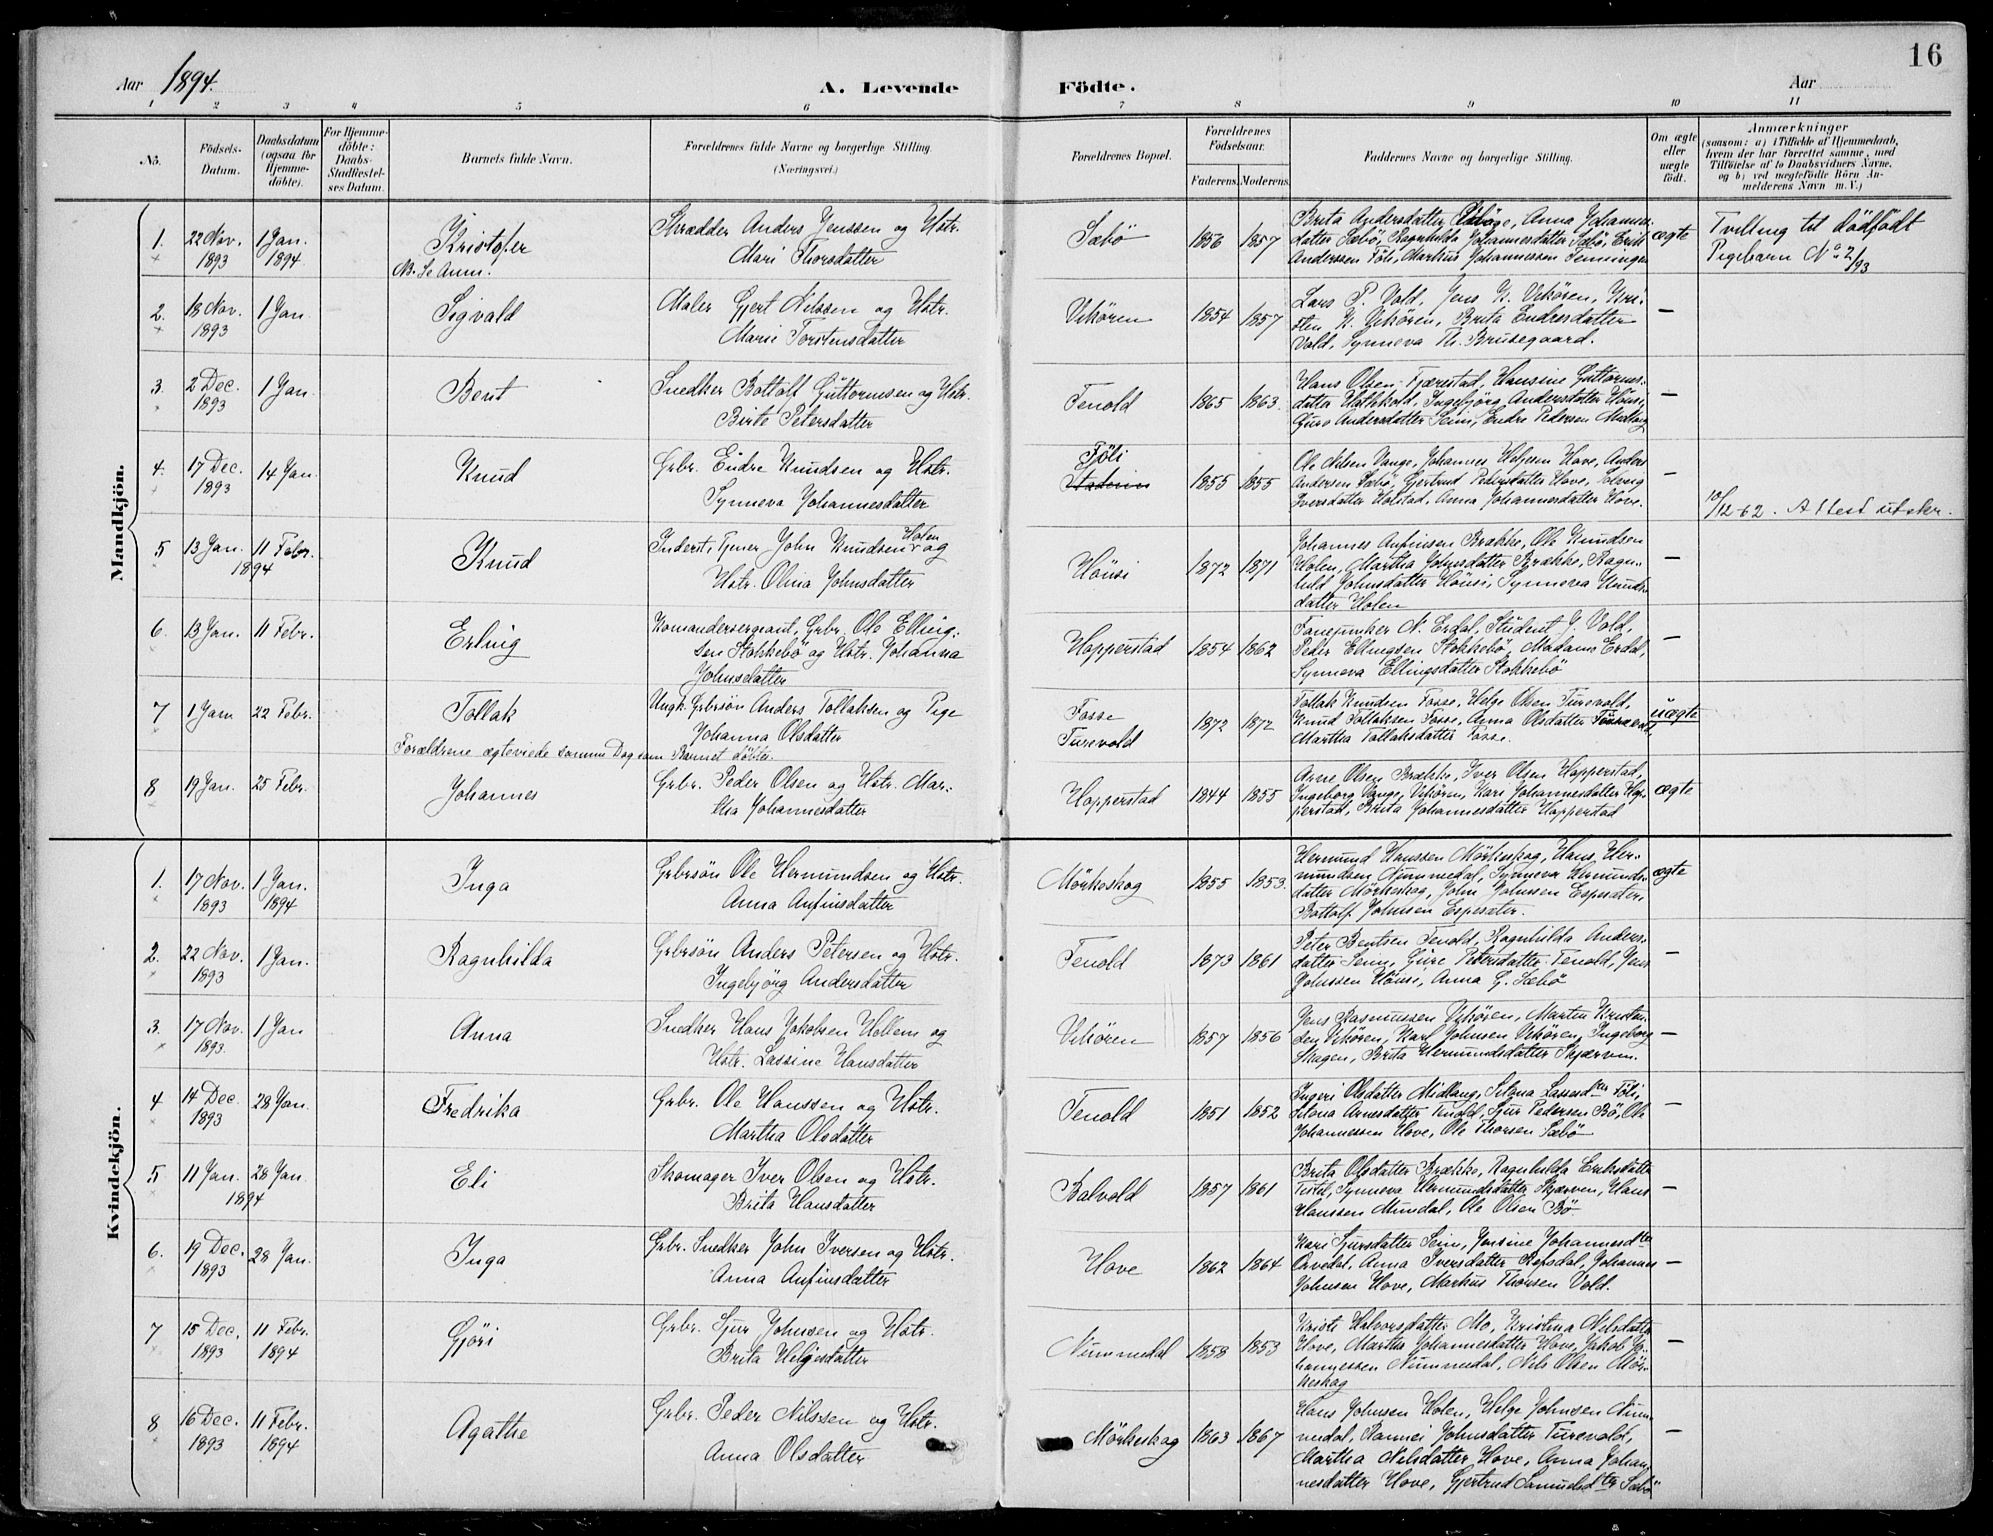 16
Aar 1894.
A. Levende Födte.
Aar
1 2 3 4 5 6 7 8 9 10 11
No. Födsels-Datum. Daabsdatum (ogsaa for Hjemme-döbte). For Hjemme-döbte: Daabs-Stadfæstel-ses Datum. Barnets fulde Navn. Forældrenes fulde Navne og borgerlige Stilling. (Næringsvei.) Forældrenes Bopæl. Forældrenes Födselsaar. Faderens. Moderens. Faddernes Navne og borgerlige Stilling. Om ægte eller uægte födt. Anmærkninger (saasom: a) i Tilfælde af Hjemmedaab, hvem der har forrettet samme, med Tilföielse af to Daabsvidners Navne, og b) ved uægtefödte Börn An-melderens Navn m. V.)
Mandkjön.
1. 22 Nov. 1893 1 Jan. 1894. Kristofer
N.B. Se Anm.
Skrædder Anders Jenssen og Hstr.
Mari Thorsdatter
Sæbö 1856 1857
Brita Andersdatter, Anna Johannes-
datter Sæbö, Ragnhilda Johannesdatter Sæbö, Erik
Anderssen Föli, Markus Johannessen
ægte
Tvilling til dödfödt
Pigebarn No 2/93
2. 18 Nov. 1893 1 Jan. Sigvald
Maler Gjert Nilssen og Hstr.
Marie Torstensdatter
Vikören 1854 1857
Lars P. Vold, Jens K. Vikören, Kri-
sten K. Vikören, Brita Endresdatter
Vold, Synneva Th. Brusegaard. —
3. 2 Dec. 1893 1 Jan. Bent
Snedker Bottolf Guttormsen og Hstr.
Birte Petersdatter
Tenold 1865 1863
Hans Olsen Tjærestad, Hansine Guttorms-
datter, Ingebjörg Andersdatter Hönsi,
Guro Andersdatter Seim, Endre Pedersen Midlang —
4. 17 Dec. 1893 14 Jan. Knud
Grbr. Endre Knudsen og Hstr.
Synneva Johannesdatter
Föli 1855 1855
Ole Nilsen Vange, Johannes Helgesen Hove, Anders
Andersen Sæbö, Gjertrud Pedersdatter Hove, Solveig
Iversdatter Holstad, Anna Johannesdatter Hove. —
10/12-62. Attest utskr.
5 13 Jan. 11 Febr. 1894 Knud
Inderst, Tjener John Knudsen Holen og
Hstr. Olina Johnsdatter
Hönsi 1872 1871
Johannes Anfinsen Brække, Ole Knudsen
Holen, Martha Johnsdatter Brække, Ragn-
hild Johnsdatter Hönsi, Synneva Knuds-
datter Holen —
6. 13 Jan. 11 Febr. Erling
Komandersergeant, Grbr. Ole Elling-
sen Stokkebö og Hstr. Johanna
Johnsdatter
Hopperstad 1854 1862
Fanejunker N. Erdal, Student G. Vold,
Peder Ellingsen Stokkebö, Madame Erdal,
Synneva Ellingsdatter Stokkebö —
7 1 Jan 22 Febr. Tollak
Ungk. Grbrsön Anders Tollaksen og Pige
Johanna Olsdatter
Forældrene ægteviede samme Dag som Barnet döbtes.
Fosse
Turevold 1872 1872
Tollak Knudsen Fosse, Helge Olsen Turevold,
Knud Tollaksen Fosse, Anna Olsdatter Turevold,
Martha Tollaksdatter Fosse.
uægte
8 19 Jan. 25 Febr. Johannes
Grbr. Peder Olsen og Hstr. Mar-
tha Johannesdatter
Hopperstad 1844 1855
Arne Olsen Brække, Iver Olsen Hopperstad,
Ingeborg Vange, Vikören, Kari Johannesdatter Hop-
perstad, Brita Johannesdatter Hopperstad
ægte
Kvindekjön.
1. 17 Nov. 1893 1 Jan. 1894 Inga
Grbrsön Ole Hermundsen og Hstr.
Anna Anfinsdatter
Mörkeskog 1855 1853.
Hermund Hanssen Mörkeskog, Hans Her-
mundsen Nummedal, Synneva Hermunds-
datter Mörkeskog, John Johnsen Espesæter,
Bottolf Johnsen Espesæter.
ægte
2. 22 Nov. 1893 1 Jan. Ragnhilda
Grbrsön Anders Petersen og Hstr.
Ingebjörg Andersdatter
Tenold 1873 1861
Peter Bentsen Tenold, Ragnhilda Anders-
datter Seim, Guro Petersdatter Tenold, Jens
Johnssen Hönsi, Anna G. Sæbö —
3. 17 Nov. 1893. 1 Jan Anna
Snedker Hans Jakobsen Hollem og
Hstr. Lassine Hansdatter
Vikören 1857 1856
Jens Rasmussen Vikören, Martin
Vikören, Karl Johnsen Vikören, Ingeborg
Skagen, Brita Hermundsdatter Skjærven. —
4 14 Dec. 1893 28 Jan. Fredrika
Grbr. Ole Hanssen og Hstr.
Martha Olsdatter
Tenold 1851 1852
Ingeri Olsdatter Midlang, Föli,
Arnesdatter, Sjur Pedersen Bö, Ole
Johannessen Hove, Ole Thorsen Sæbö —
5 11 Jan. 28 Jan. 1894 Eli
Skomager Iver Olsen og Hstr.
Brita Hansdatter
Bolvold 1857 1861
Brita Olsdatter Brække, Ragnhilda Eriksdatter
Tistel, Synneva Hermundsdatter Skjærven, Hans
Hanssen Mundal, Ole Olsen Bö —
6. 19 Dec. 1893 28 Jan. Inga
Grbr. Snedker John Iversen og Hstr.
Anna Anfinsdatter
Hove 1862 1864
Kari Sjursdatter Seim, Jensine Johannesdtr
Orvedal, Anna Iversdatter Refsdal, Johannes
Johnsen Hove, Markus Thorsen Vold. —
7 15 Dec. 1893 11 Febr. 1894 Gjöri
Grbr. Sjur Johnsen og Hstr.
Brita Helgesdatter
Nummedal 1858 1853
Kristi Halvorsdatter Mo, Kristina Nilsdatter
Hove, Martha Johannesdatter Hove, Jakob Jo-
hannessen Nummedal, Nils Olsen Mör-
keskog —
8 16 Dec. 1893 11 Febr. 1894 Agathe
Grbr. Peder Nilssen og Hstr.
Anna Olsdatter
Mörkeskog 1863 1867
Hans Johnsen Holen, Helge Johnsen Num-
medal, Rannei Johnsdatter Turevold,
Martha Nilsdatter Hove, Anna Johan-
nesdatter Hove, Gjertrud Samuelsdtr Sæbö —